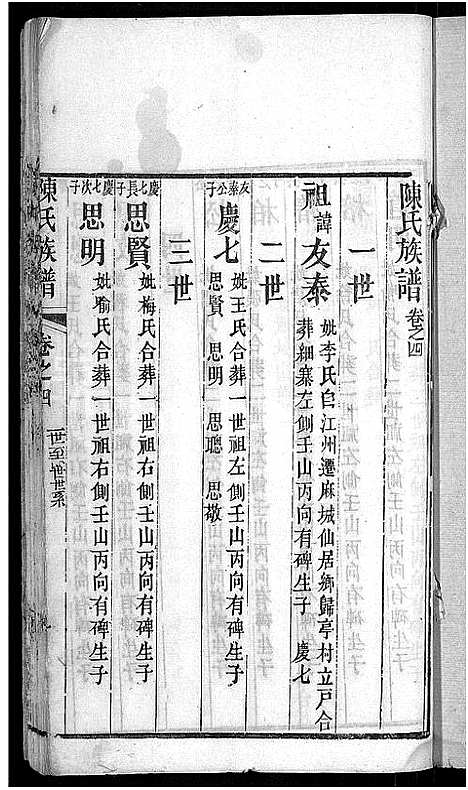 陳氏族譜 卷之四
一世
祖諱友泰 妣李氏自江州遷麻城仙居鄉歸亭村立戸合
葬細寨左側壬山丙向有碑生子 慶七
二世
友泰公子
慶七 妣王氏合葬一世祖左側壬山丙向有碑生子
思賢 思明 思聰 思敬
三世
慶七長子
思賢 妣梅氏合葬一世祖右側壬山丙向有碑生子
慶七次子
思明 妣喻氏合葬一世祖右側壬山丙向有碑生子
陳氏族譜 卷之四